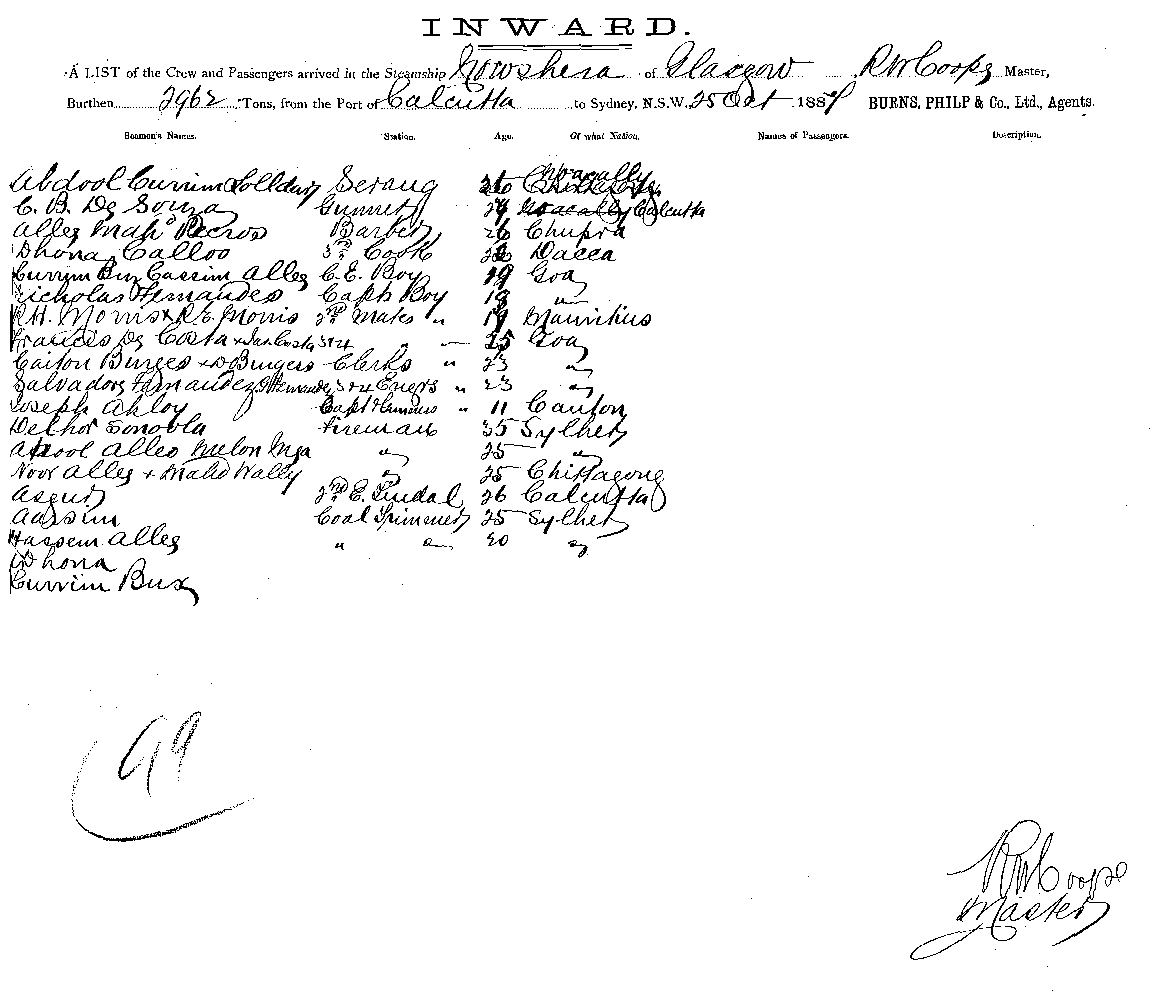 INWARD.
A LIST of the Crew and Passengers arrived in the Steamship Nowshera of Glasgow RW Coope Master,
Burthen 2962 Tons, from the Port of Calcutta to Sydney, N.S.W., 25 Oct 1887 BURNS, PHILP & Co., Ltd., Agents.
Seamen's Names. Station. Age. Of what Nation. Names of Passengers. Description.
Noacally
Abdool Currim Serang
C. B. De Souza Gunner 29 Calcutta
Alley Barber 26 Chupra
Dhona Calloo 3rd Cook Dacca
Currim Bux Cassim Alley C. E. Boy 19 Goa
Nicholas Fernandes Capts Boy 18 "
R.H. Morris & R.E. Morris 2nd Mates " 19 Mauritius
Francis De Costa & 3 & 4 " " 25 Goa
Caiton Burges & D Burgess Clerks " 23 "
Salvadore Fernandez 3 & 4 Engrs " 23 "
Joseph Ahloy Capt " 11 Canton
Sonoola Fireman 35 Sylhet
Alley " 25 "
Noor Alley & Mahd Wally " 25 Chittagong
Asgur 2nd E. Tindal 26 Calcutta
Aassim Coal Trimmer 25 Sylhet
Hassem Alley " " 20 "
Dhona
Currim Bux
99
RW Coope
Master